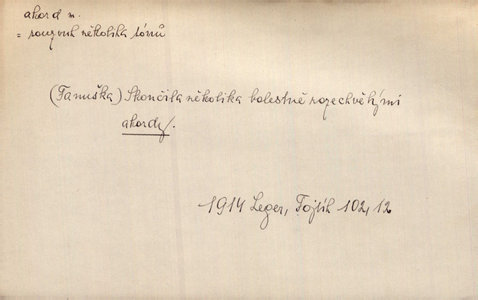 akord m.
= souzvuk několika tónů
(Fanuška) Skončila několika bolestně rozechvělými
akordy.
1914 Leger, Fojtík 102,12